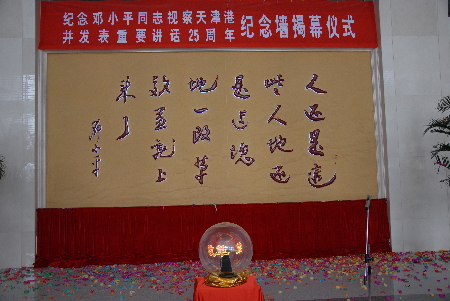 纪念邓小平同志视察天津港
并发表重要讲话25周年
纪念墙揭幕仪式
人还是这
些人地还
是这块
地一改革
效益就上
来了
邓小平